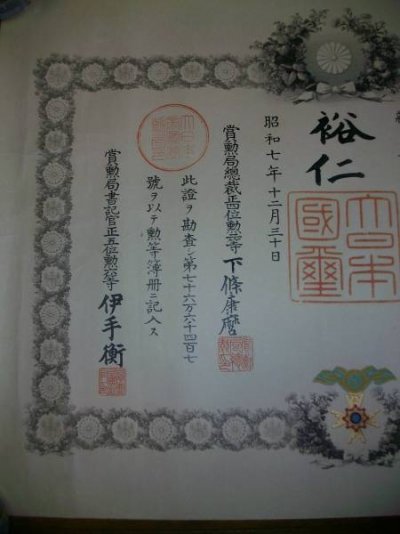 裕仁
大日本國璽
昭和七年十二月三十日
賞勲局總裁正四位勲等 下條康麿
此證ヲ勘査シ第七十六万六千四百七
號ヲ以テ勲等簿冊ニ記入ス
賞勲局書記官正五位勲等 伊手衡